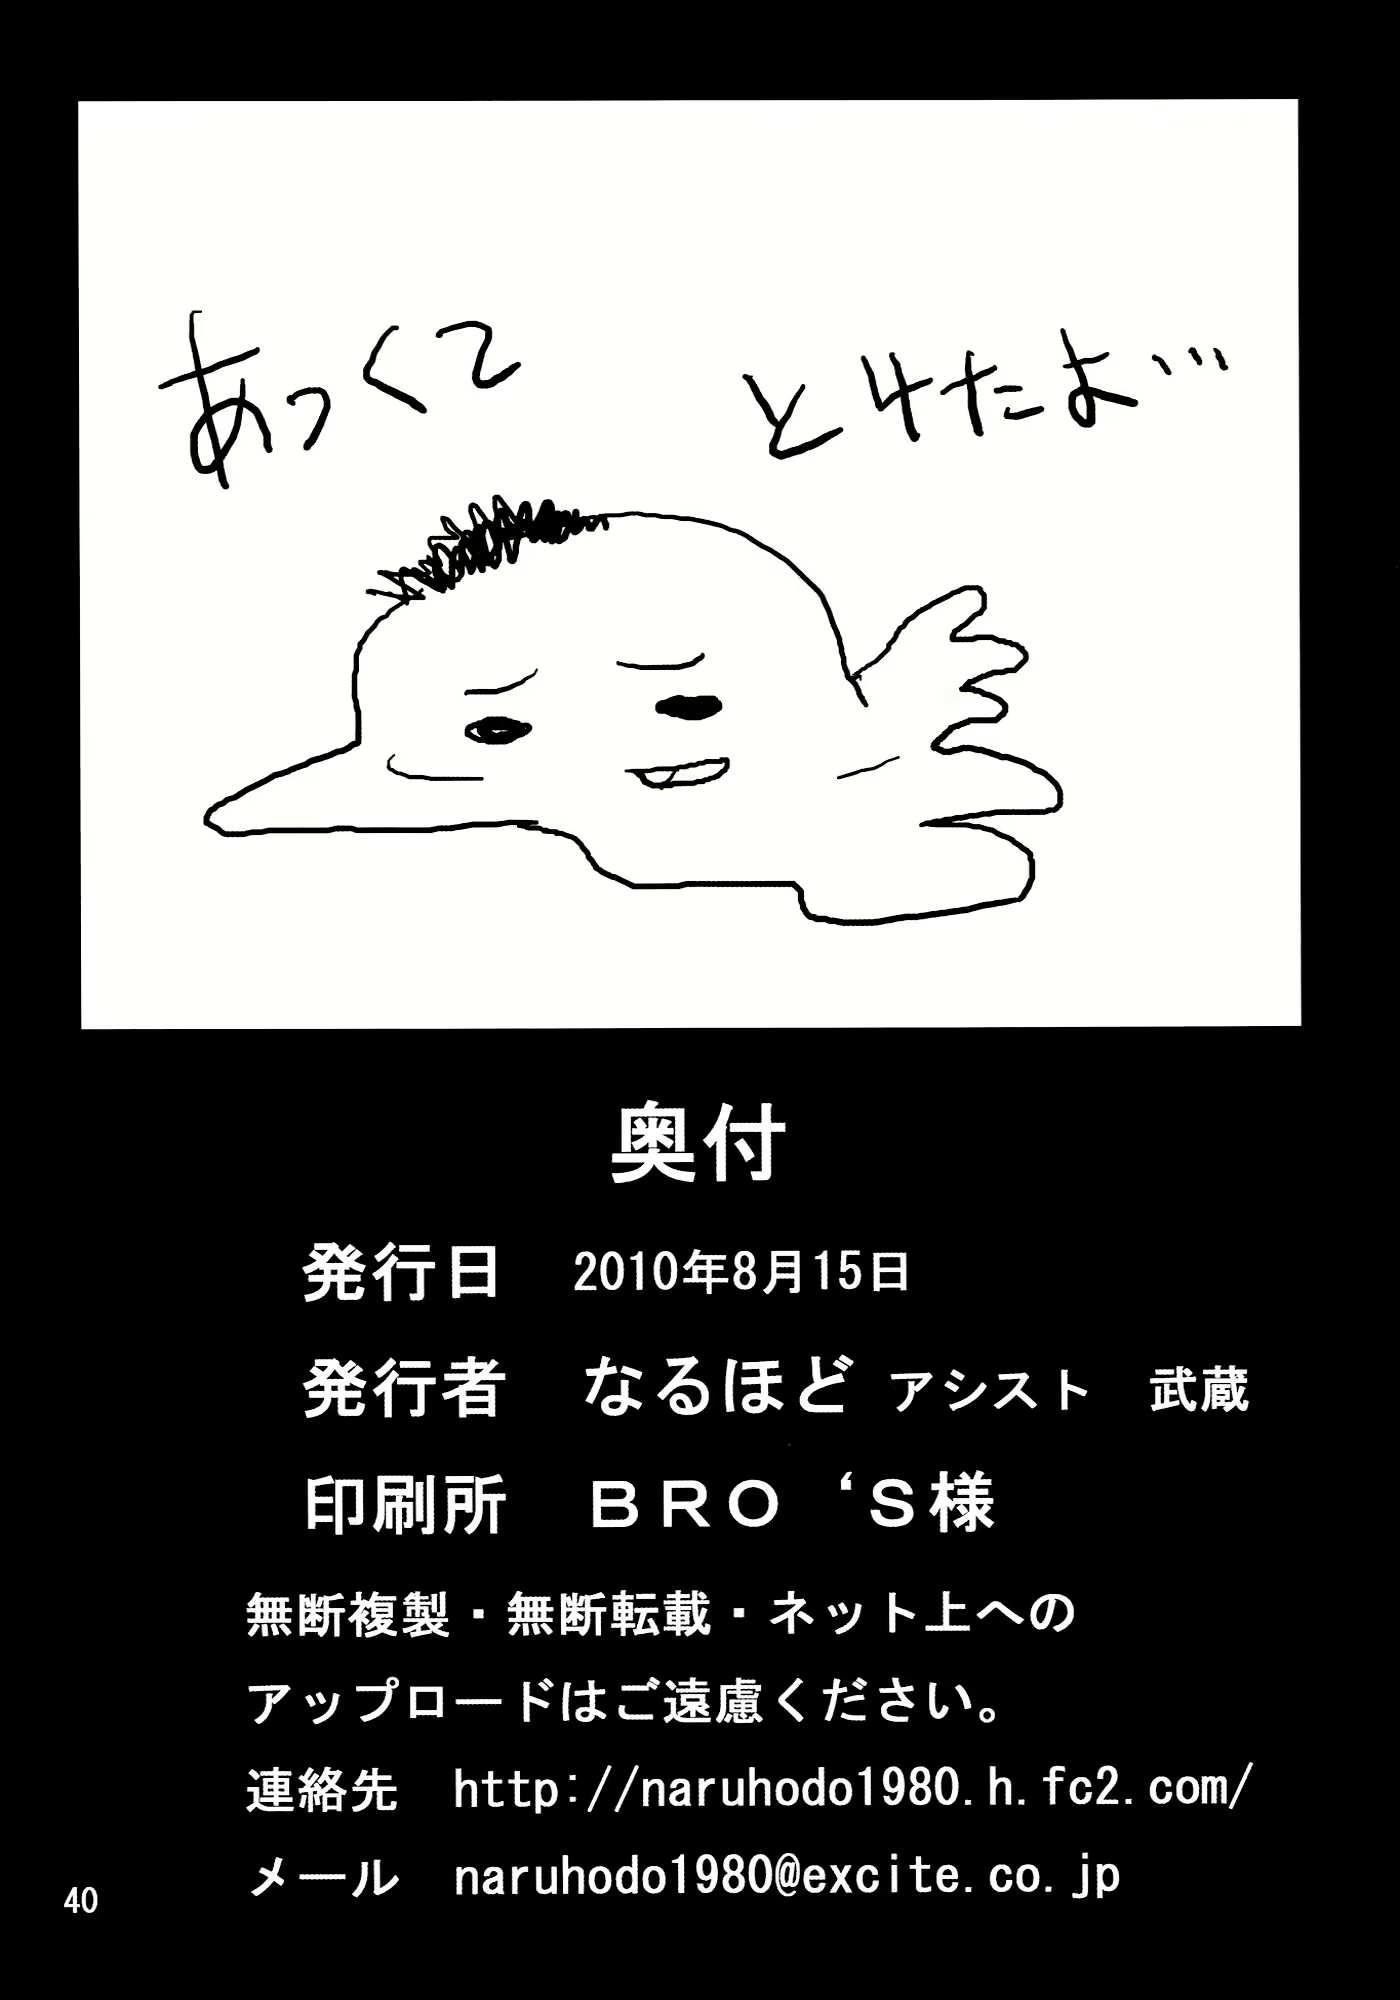 あっくて とけたよ…
奥付
発行日 2010年8月15日
発行者 なるほど アシスト 武蔵
印刷所 ＢＲＯ ‘Ｓ様
無断複製・無断転載・ネット上への
アップロードはご遠慮ください。
連絡先 http://naruhodo1980.h.fc2.com/
メール naruhodo1980@excite.co.jp
40